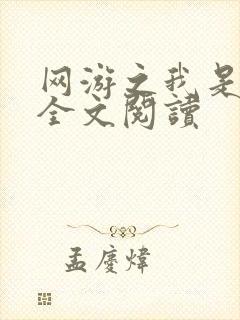 网游之我是
全文閱讀
孟慶煒